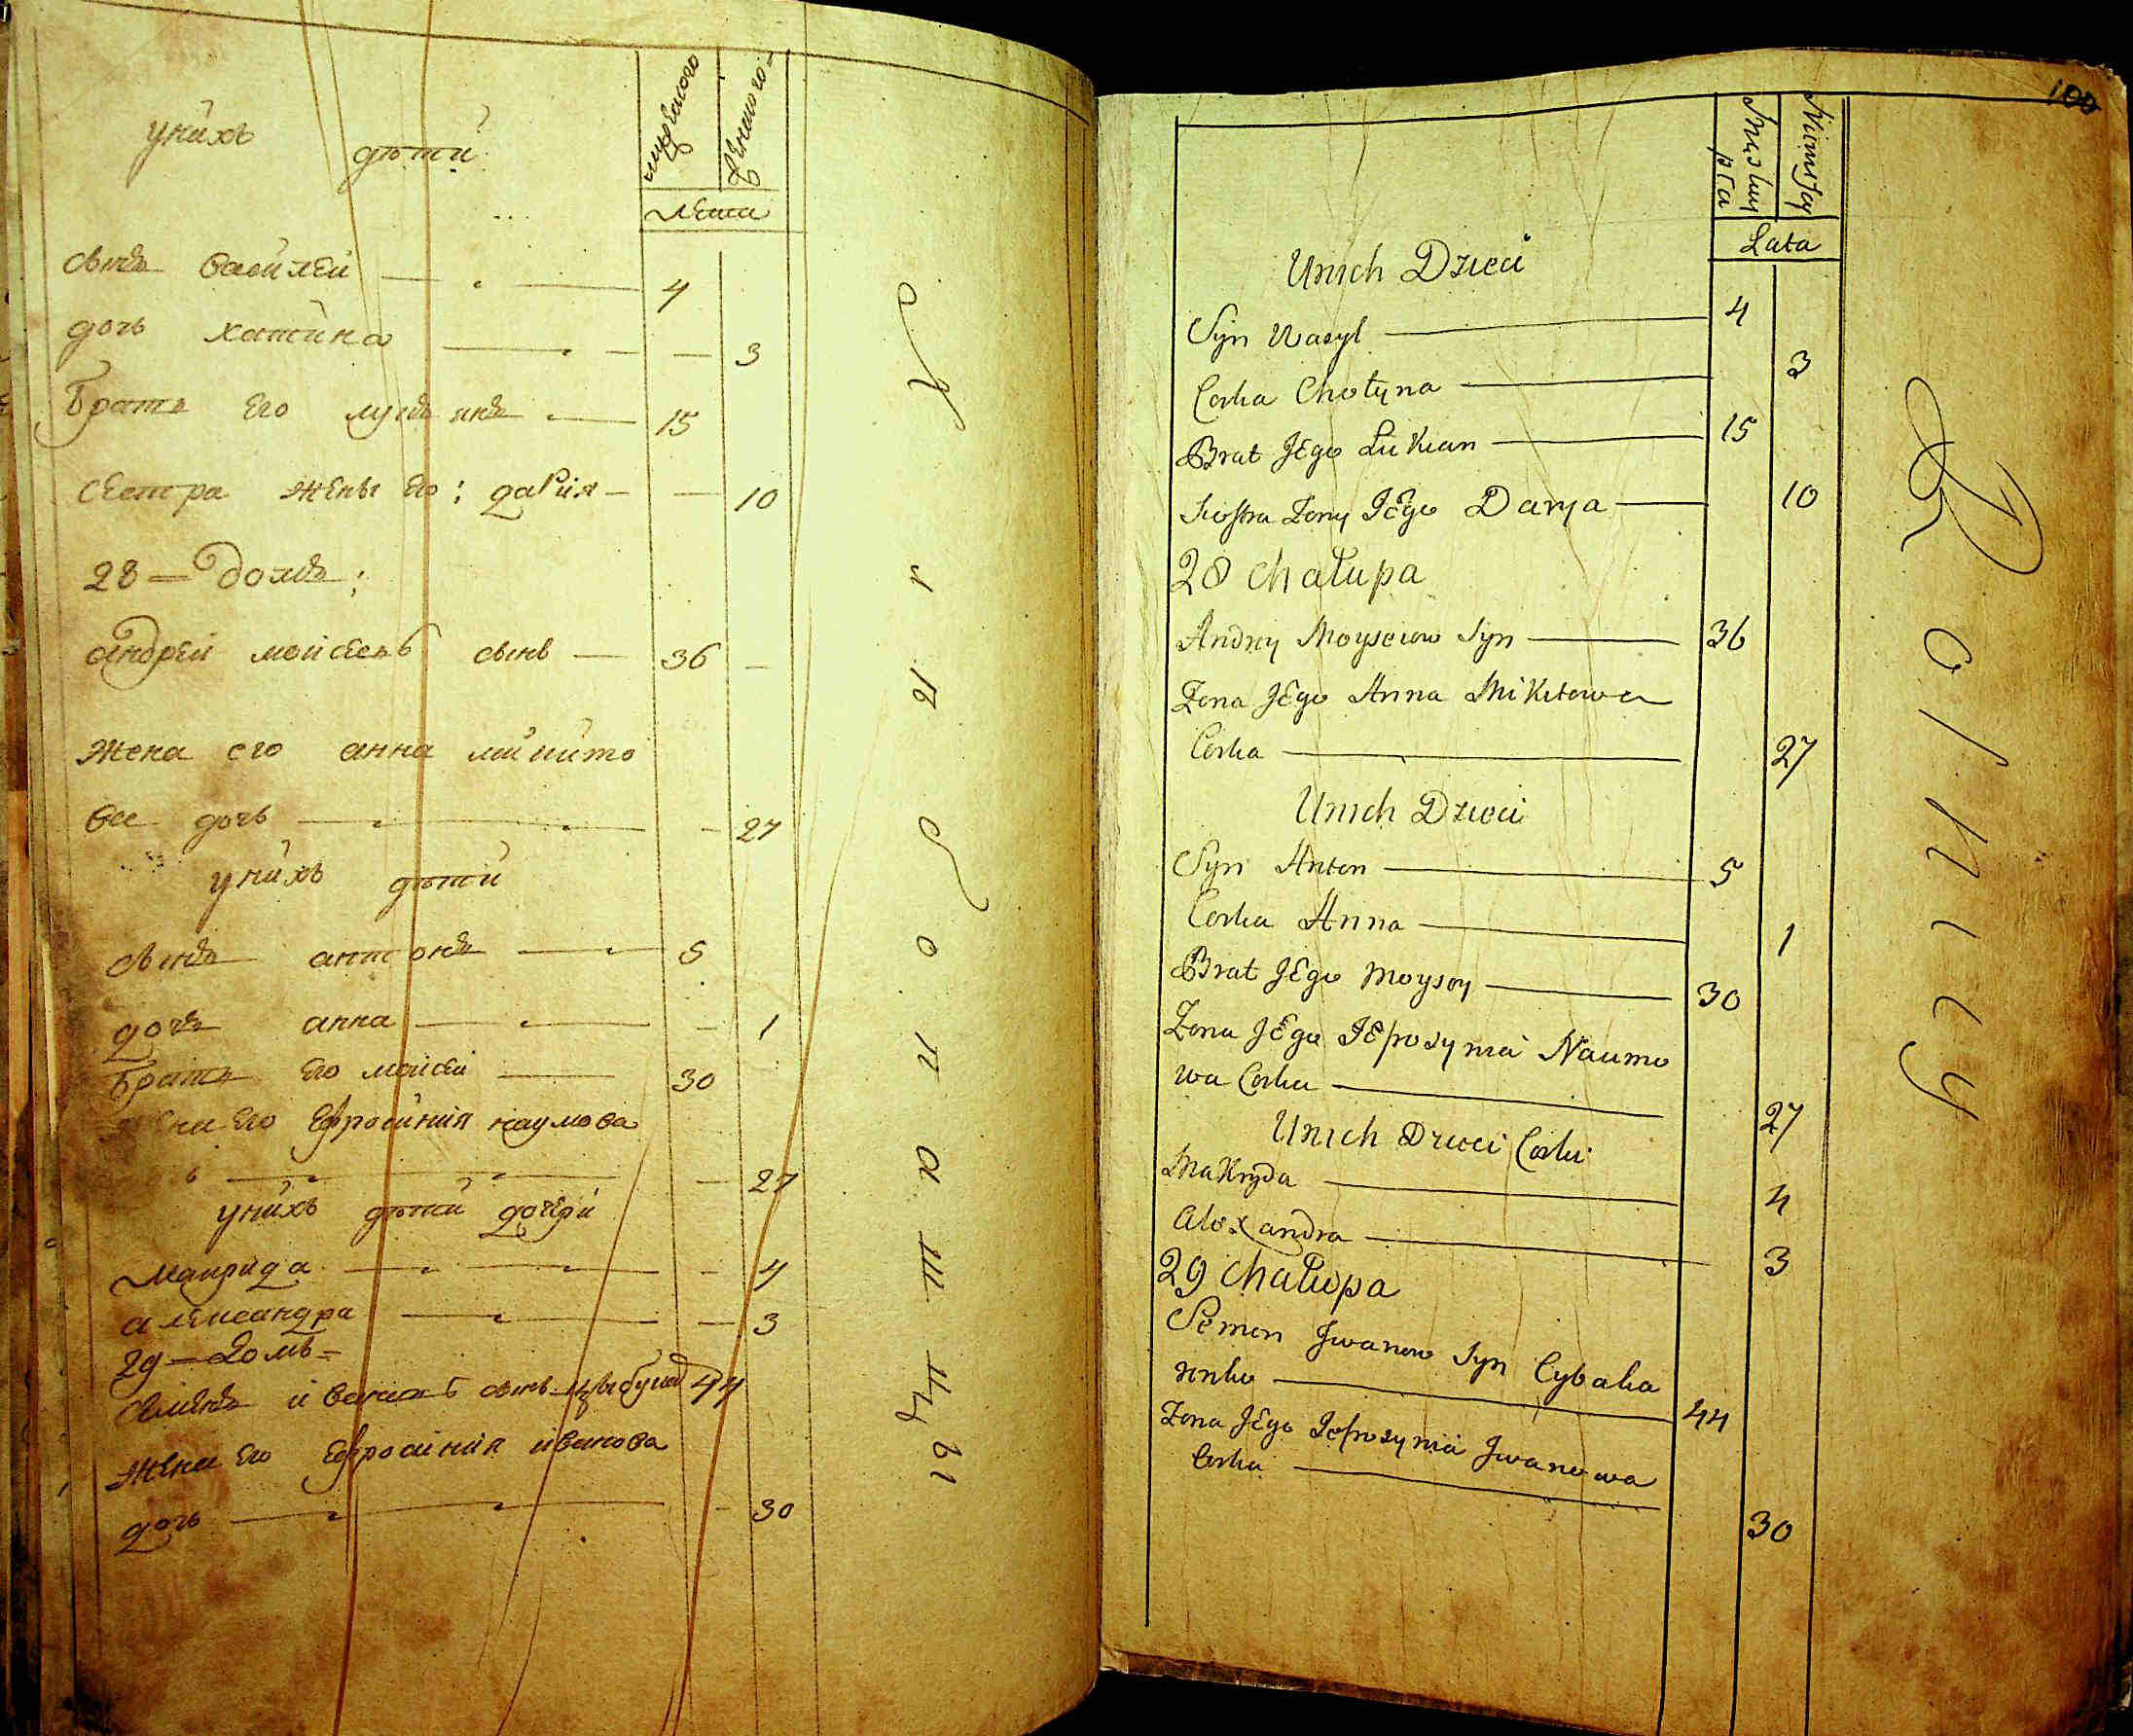 мужескаго
женскаго
лета
у нихъ дѣти
сынъ василей 4
дочь хатина 3
братъ его лукьянъ 15
сестра жены его: дария 10
28 = домъ:
андрей моисеевъ сынъ 36
жена его анна микито
ва дочь 27
у нихъ дѣти
сынъ антонъ 5
дочь анна 1
братъ его моисей 30
жена его ефросиния наумова
27
у нихъ дѣти дочери
макрида 4
александра 3
29 = домъ =
семенъ ивановъ сынъ 44
жена его ефросиния иванова
дочь 30
100
Męzka
płca
Niewiescia
Lata
Unich Dzieci
Syn Wasyl 4
Corka Chotyna 3
Brat Jego Lukian 15
Siostra Zony Jego Darya 10
28 Chałupa
Andrzy Moyseiow Syn 36
Zona Jego Anna Mikitowa
Corka 27
Unich Dzieci
Syn Anton 5
Corka Anna 1
Brat Jego Moysey 30
Zona Jego Jefrosynia Naumo
wa Corka 27
Unich Dzieci Corki
Makryda 4
Alexandra 3
29 Chałupa
Semen Jwanow Syn Cybala
nnko 44
Zona Jego Jefrosynia Jwanowa
Corka 30
Rolnicy